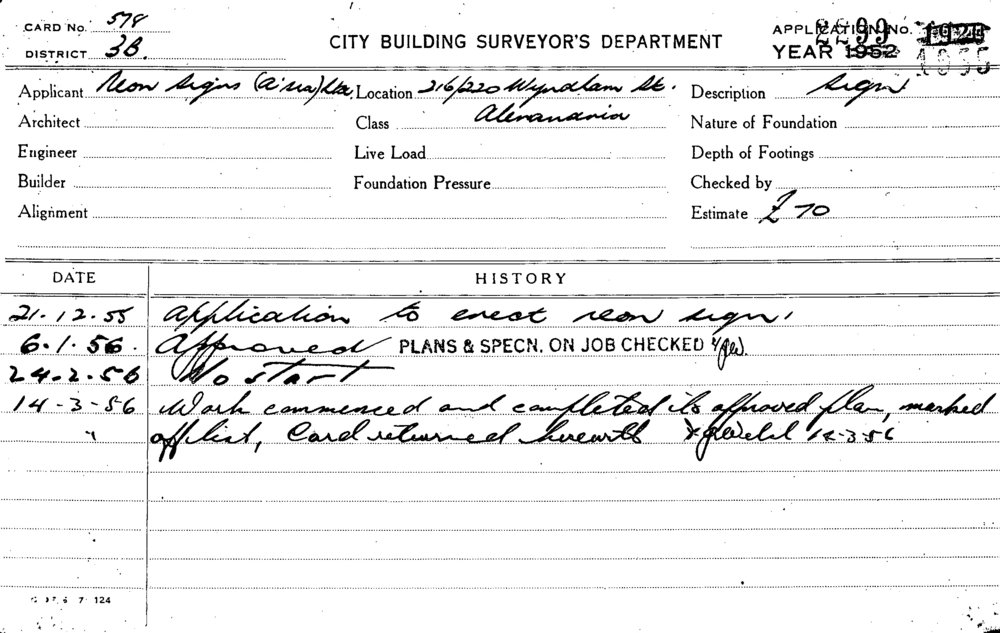 CARD No. 578
DISTRICT 3B.
CITY BUILDING SURVEYOR'S DEPARTMENT
APPLICATION No.
2299
YEAR 1952
1955
Applicant Neon Signs (A'sia) Ltd Location 216/220 Wyndham St. Description Sign
Architect Class Alexandria Nature of Foundation
Engineer Live Load Depth of Footings
Builder Foundation Pressure Checked by
Alignment Estimate £70
DATE HISTORY
21.12.55 Application to erect neon sign.
6.1.56. Approved PLANS & SPECN. ON JOB CHECKED
24.2.56 No start
14-3-56 Work commenced and completed to approved plan, marked
" off list, Card returned herewith 14-3-56
7 124